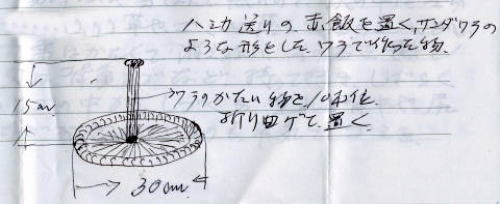 ハシカ送りの赤飯を置く、サンダワラの
ような形をした、ワラで作った物
ワラのかたい物を10本位
折り曲ゲて置く
15cm
30cm